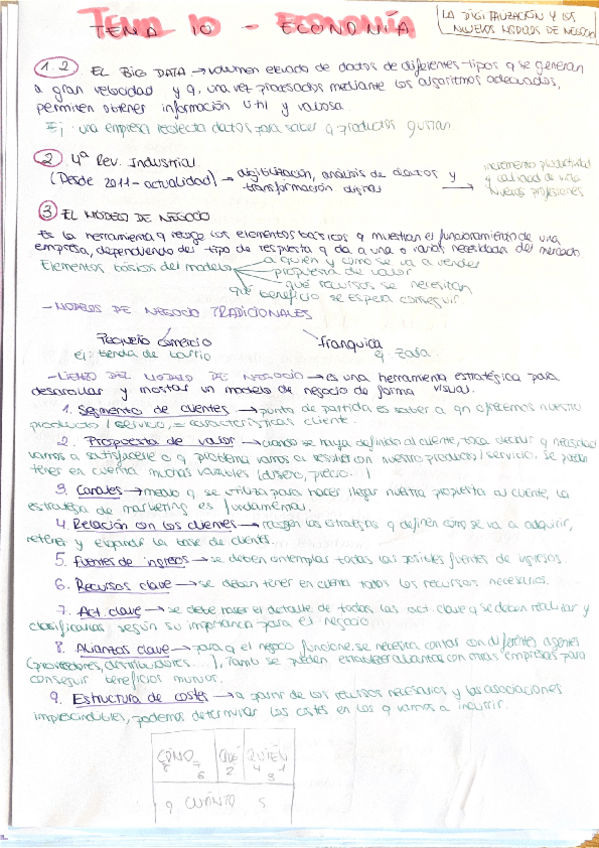 TEMA 10 - ECONOMÍA
LA DIGITALIZACIÓN Y LOS
NUEVOS MODELOS DE NEGOCIO
1.2 EL BIG DATA → volumen elevado de datos de diferentes tipos q se generan
a gran velocidad y q, una vez procesados mediante los algoritmos adecuados,
permiten obtener información útil y valiosa.
Ej: una empresa recolecta datos para sacar q productos gustan
2 4ª Rev. Industrial
(Desde 2011 - actualidad) → digitalización, análisis de datos y
transformación digital
→ incremento productividad
y calidad de vida
nuevas profesiones
3 EL MODELO DE NEGOCIO
Es la herramienta q recoge los elementos básicos q muestran el funcionamiento de una
empresa, dependiendo del tipo de respuesta q da a una o varias necesidades del mercado
Elementos básicos del modelo
a quién y cómo se va a vender
propuesta de valor
qué recursos se necesitan
qué beneficio se espera conseguir
- MODELOS DE NEGOCIO TRADICIONALES
Pequeño comercio
ej: tienda de barrio
franquicia
ej: Zara
- LIENZO DEL MODELO DE NEGOCIO → es una herramienta estratégica para
desarrollar y mostrar un modelo de negocio de forma visual.
1. Segmento de clientes → punto de partida es saber a qn ofrecemos nuestro
producto / servicio, = características cliente.
2. Propuesta de valor → cuando se haya definido al cliente, toca decidir q necesidad
vamos a satisfacerle o q problema vamos a resolver con nuestro producto / servicio. Se pueden
tener en cuenta muchas variables (diseño, precio...)
3. Canales → medio q se utiliza para hacer llegar nuestra propuesta al cliente, la
estrategia de marketing es fundamental.
4. Relación con los clientes → recogen las estrategias q definen cómo se va a adquirir,
retener y expandir la base de clientes.
5. Fuentes de ingresos → se deben contemplar todas las posibles fuentes de ingresos.
6. Recursos clave → se deben tener en cuenta todos los recursos necesarios.
7. Act. clave → se debe hacer el detalle de todas las act. clave q se deben realizar y
clasificarlas según su importancia para el negocio
8. Alianzas clave → para q el negocio funcione, se necesita contar con diferentes agentes
(proveedores, distribuidores...), tamb se pueden establecer alianzas con otras empresas para
conseguir beneficios mutuos.
9. Estructura de costes → a partir de los recursos necesarios y las asociaciones
imprescindibles, podemos determinar los costes en los q vamos a incurrir.
CÓMO QUÉ QUIÉN
8 7 6 2 4 1 3
9 CUÁNTO 5